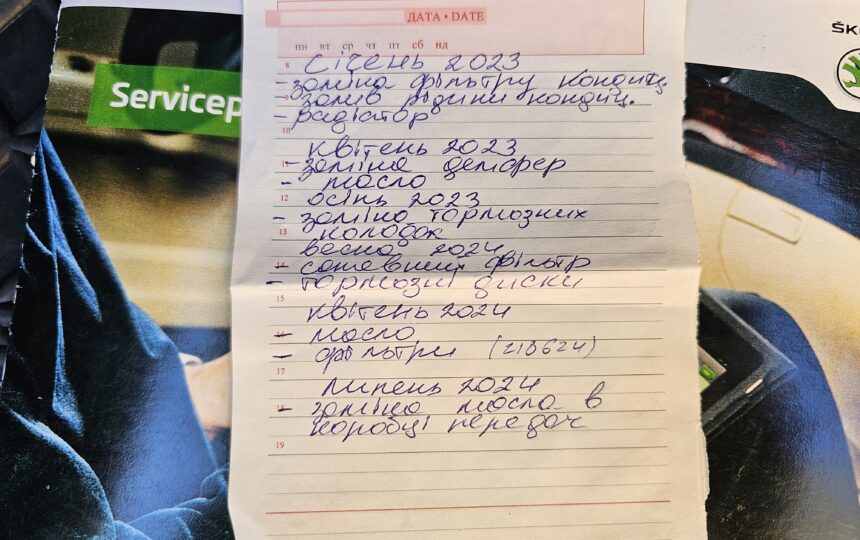 ДАТА • DATE
пн вт ср чт пт сб нд
ŠK
Servicep
8 Січень 2023
- заміна фільтру кондиц.
9 - залив рідини кондиц.
- радіатор
10
квітень 2023
11 - заміна демфер
- масло
12 осінь 2023
- заміна тормозних
13 колодок
весна 2024
14 - салонний фільтр
- тормозні диски
15
квітень 2024
16 - масло
- фільтри (213624)
17
липень 2024
18 - заміна масла в
коробці передач
19